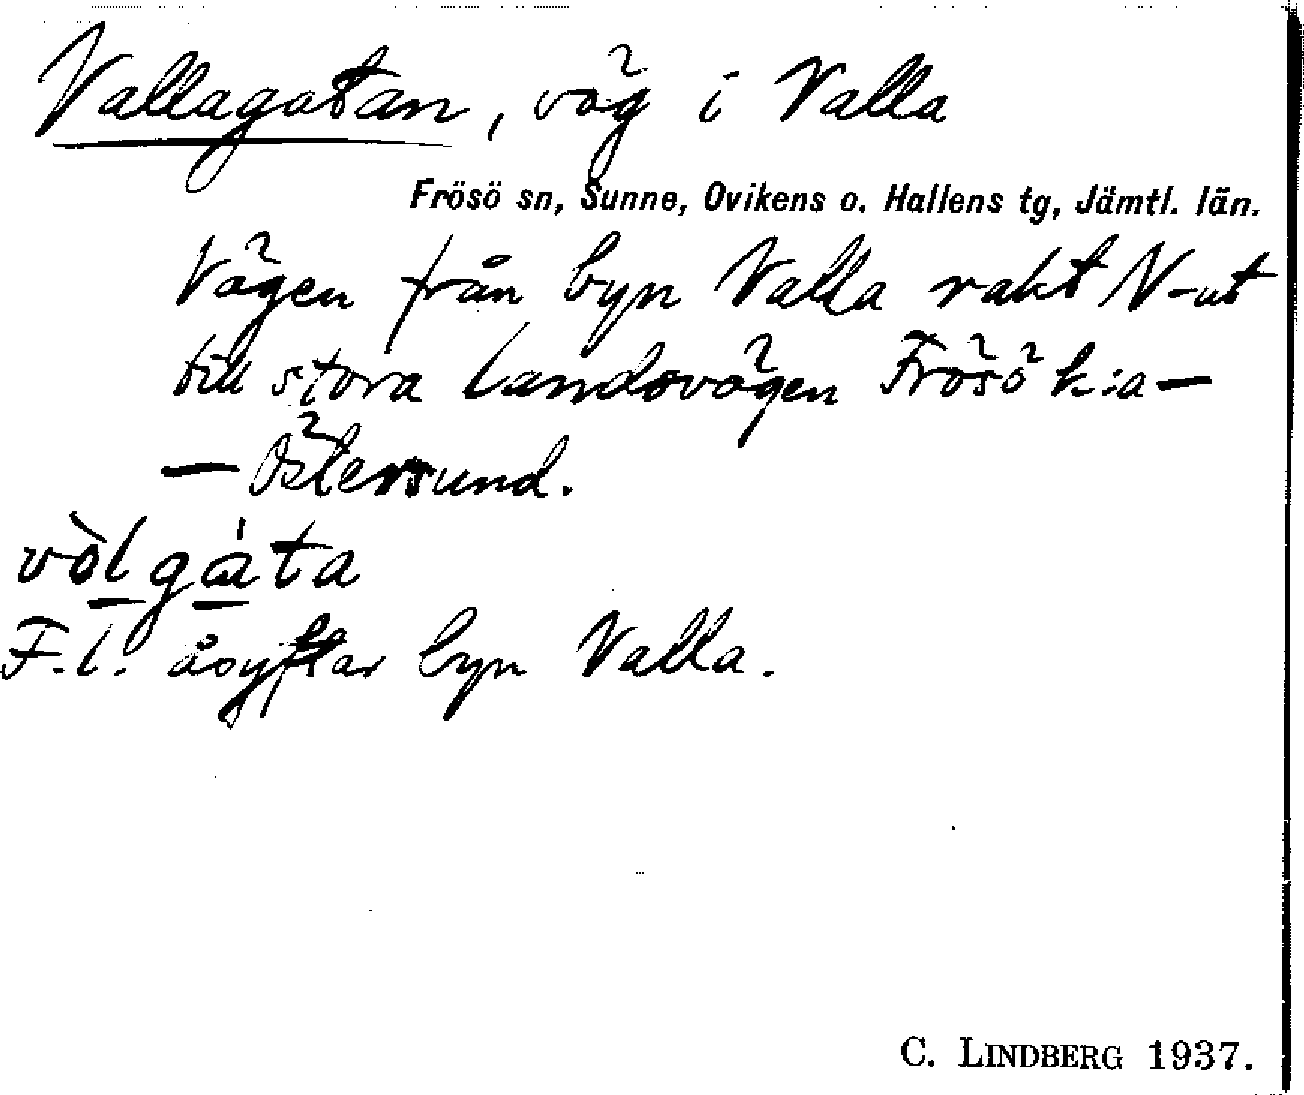 Vallagatan, väg i Valla
Frösö sn, Sunne, Ovikens o. Hallens tg, Jämtl. län.
Vägen från byn Valla rakt N-ut
till stora landsvägen Frösö k:a —
— Östersund.
vòlgàta
F.l. åsyftar byn Valla.
C. LINDBERG 1937.